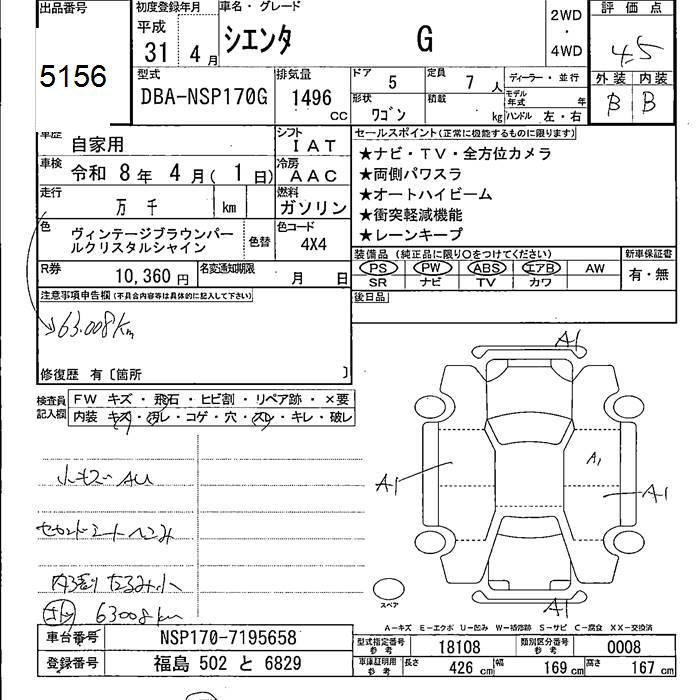 出品番号
5156
初度登録年月
平成
31 4 月
車名・グレード
シエンタ G
2WD
・
4WD
評価点
4.5
外装 内装
B B
型式
DBA-NSP170G
排気量
1496 cc
ドア 5
定員 7 人
形状 ワゴン
積載 kg
ディーラー・並行
モデル年式 年
ハンドル 左・右
車歴 自家用
シフト IAT
車検 令和 8 年 4 月( 1 日)
冷房 AAC
走行 万 千 km
燃料 ガソリン
色 ヴィンテージブラウンパー
ルクリスタルシャイン
色替
色コード
4X4
R券 10,360 円
名変通知期限 月 日
セールスポイント(正常に機能するものに限ります)
★ナビ・TV・全方位カメラ
★両側パワスラ
★オートハイビーム
★衝突軽減機能
★レーンキープ
装備品 (純正品に限り○をつけてください)
PS PW ABS エアB AW
SR ナビ TV カワ
新車保証書
有・無
後日品
注意事項申告欄(不具合内容等は具体的に記入して下さい)
63.008km
修復歴 有〔箇所 〕
検査員
記入欄
FW キズ・飛石・ヒビ割・リペア跡・×要
内装 キズ・汚レ・コゲ・穴・スレ・キレ・破レ
小キズ AU
セカンドシートヘコみ
63008km
A1
A1
A1
A1
A1
スペア
A-キズ E-エクボ U-凹み W-補修跡 S-サビ C-腐食 XX-交換済
車台番号 NSP170-7195658
登録番号 福島 502 と 6829
型式指定番号
参考
18108
類別区分番号
参考
0008
車庫証明用
参考
長さ 426 cm
幅 169 cm
高さ 167 cm